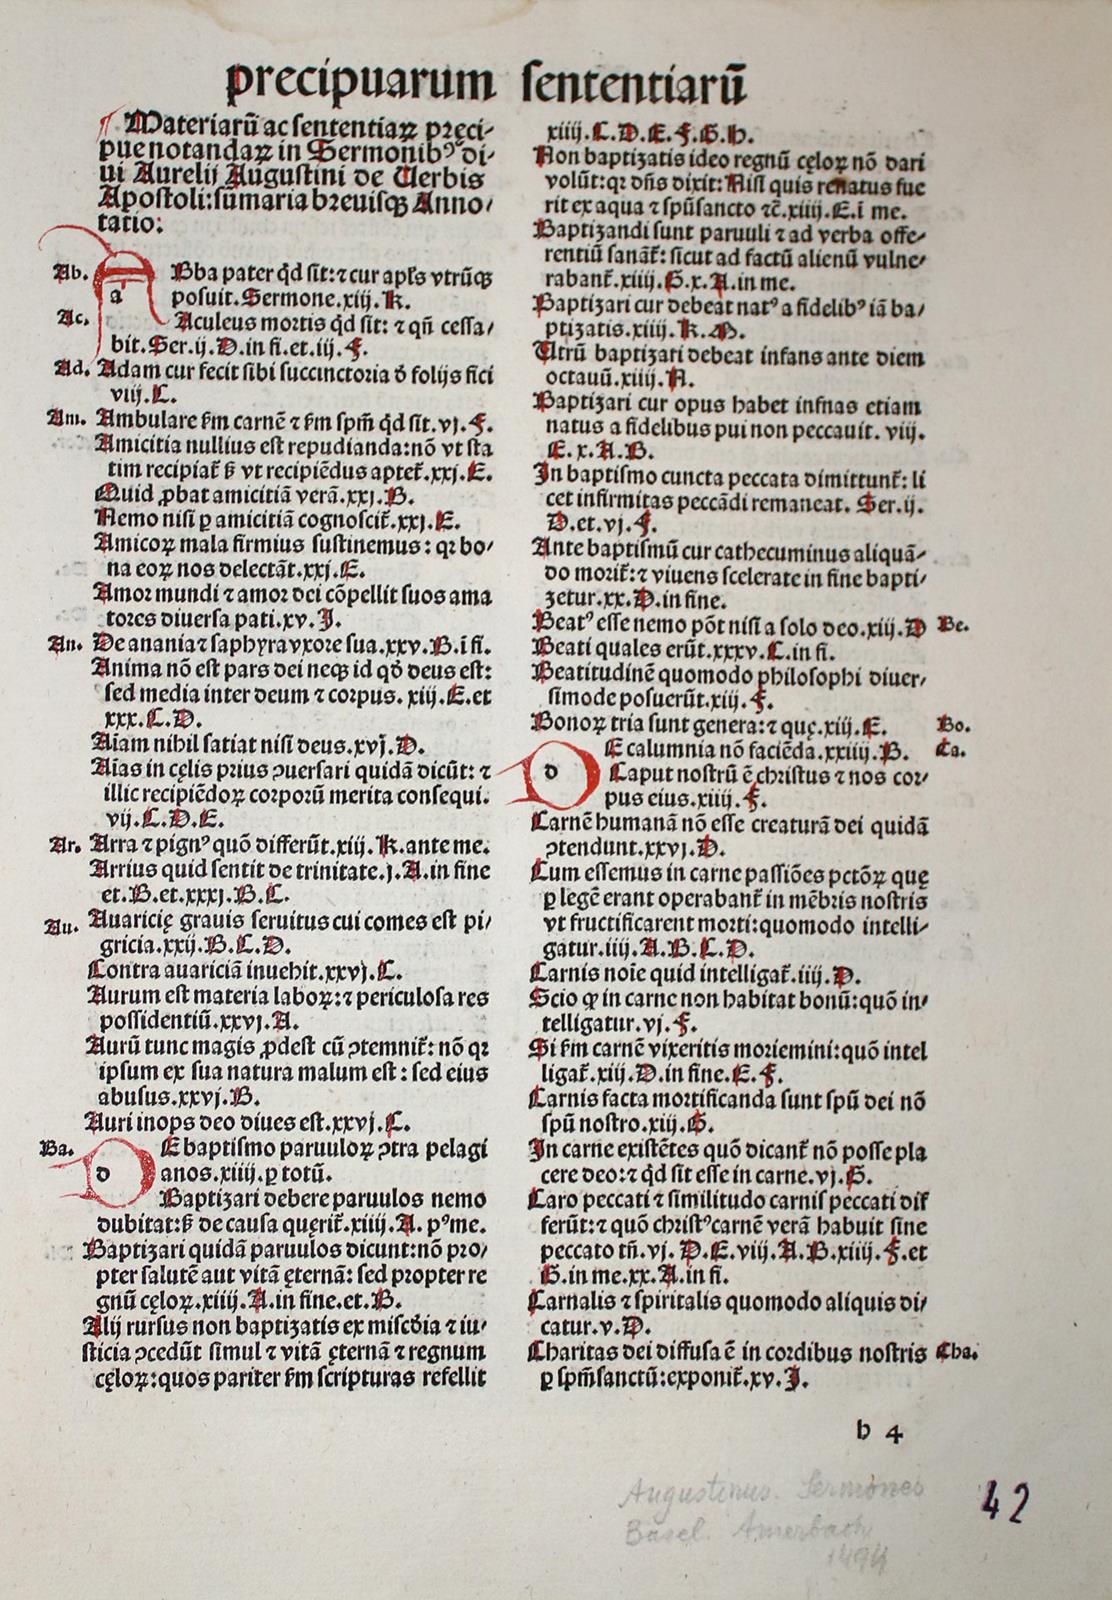 precipuarum sententiarū
Materiarū ac sententiaꝝ pręci-
pue notandaꝝ in Sermonibꝰ di-
ui Aurelij Augustini de Uerbis
Apostoli: sūmaria breuisqꝫ Anno/
tatio:
Ab. a Bba pater qd̄ sit: ⁊ cur apl̄s vtrūqꝫ
posuit. Sermone. xiij. K.
Ac. Aculeus mortis qd̄ sit: ⁊ qn̄ cessa/
bit. Ser. ij. D. in fi. et. iij. F.
Ad. Adam cur fecit sibi succinctoria d̄ folijs fici
viij. C.
Am. Ambulare ẜm carnē ⁊ ẜm spm̄ qd̄ sit. vj. F.
Amicitia nullius est repudianda: nō vt sta
tim recipiat᷑ ẜ vt recipiēdus aptet᷑. xxj. E.
Quid ꝓbat amicitiā verā. xxj. B.
Nemo nisi ꝑ amicitiā cognoscit᷑. xxj. E.
Amicoꝝ mala firmius sustinemus: qꝛ bo/
na eoꝝ nos delectāt. xxj. E.
Amor mundi ⁊ amor dei cōpellit suos ama
tores diuersa pati. xv. I.
An. De anania ⁊ saphyra vxore sua. xxv. B. ī fi.
Anima nō est pars dei neqꝫ id qd̓ deus est:
sed media inter deum ⁊ corpus. xiij. E. et
xxx. C. D.
Aīam nihil satiat nisi deus. xvj. D.
Aīas in cęlis prius ꝯuersari quidā dicūt: ⁊
illic recipiēdoꝝ corporū merita consequi.
vij. C. D. E.
Ar. Arra ⁊ pignꝰ quō differūt. xiij. K. ante me.
Arrius quid sentit de trinitate. j. A. in fine
et. B. et. xxxj. B. C.
Au. Auaricię grauis seruitus cui comes est pi/
gricia. xxij. B. C. D.
Contra auariciā inuehit. xxvj. C.
Aurum est materia laboꝝ: ⁊ periculosa res
possidentiū. xxvj. A.
Aurū tunc magis ꝓdest cū ꝯtemnit᷑: nō qꝛ
ipsum ex sua natura malum est: sed eius
abusus. xxvj. B.
Auri inops deo diues est. xxvj. C.
Ba. d E baptismo paruuloꝝ ꝯtra pelagi
anos. xiiij. ꝑ totū.
Baptizari debere paruulos nemo
dubitat: ẜ de causa quęrit᷑. xiiij. A. pꝰ me.
Baptizari quidā paruulos dicunt: nō pro/
pter salutē aut vitā ęternā: sed propter re
gnū cęloꝝ. xiiij. A. in fine. et. B.
Alij rursus non baptizatis ex mīscd̓ia ⁊ iu/
sticia ꝯcedūt simul ⁊ vitā ęternā ⁊ regnum
cęloꝝ: quos pariter ẜm scripturas refellit
xiiij. C. D. E. F. G. H.
Non baptizatis ideo regnū cęloꝝ nō dari
volūt: qꝛ dn̄s dixit: Nisi quis renatus fue
rit ex aqua ⁊ spūsancto ⁊c̄. xiiij. E. ī me.
Baptizandi sunt paruuli ⁊ ad verba offe-
rentiū sanāt᷑: sicut ad factū alienū vulne/
rabant᷑. xiiij. G. x. A. in me.
Baptizari cur debeat natꝰ a fidelibꝰ iā ba/
ptizatis. xiiij. K. M.
Utrū baptizari debeat infans ante diem
octauū. xiiij. N.
Baptizari cur opus habet infnas etiam
natus a fidelibus pui non peccauit. viij.
E. x. A. B.
In baptismo cuncta peccata dimittunt᷑: li
cet infirmitas peccādi remaneat. Ser. ij.
D. et. vj. F.
Ante baptismū cur cathecuminus aliquā-
do morit᷑: ⁊ viuens scelerate in fine bapti/
zetur. xx. D. in fine.
Beatꝰ esse nemo pōt nisi a solo deo. xiij. D Be.
Beati quales erūt. xxxv. C. in fi.
Beatitudinē quomodo philosophi diuer/
simode posuerūt. xiij. F.
Bonoꝝ tria sunt genera: ⁊ quę. xiij. E. Bo.
d E calumnia nō faciēda. xxiiij. B. Ca.
Caput nostrū ē christus ⁊ nos cor/
pus eius. xiiij. F.
Carnē humanā nō esse creaturā dei quidā
ꝯtendunt. xxvj. D.
Cum essemus in carne passiōes pctōꝝ quę
ꝑ legē erant operabant᷑ in mēbris nostris
vt fructificarent morti: quomodo intelli-
gatur. iiij. A. B. C. D.
Carnis noīe quid intelligat᷑. iiij. D.
Scio ꝙ in carne non habitat bonū: quō in/
telligatur. vj. F.
Si ẜm carnē vixeritis moriemini: quō intel
ligat᷑. xiij. D. in fine. E. F.
Carnis facta mortificanda sunt spū dei nō
spū nostro. xiij. G.
In carne existētes quō dicant᷑ nō posse pla
cere deo: ⁊ qd̄ sit esse in carne. vj. G.
Caro peccati ⁊ similitudo carnis peccati dif
ferūt: ⁊ quō christꝰ carnē verā habuit sine
peccato tn̄. vj. D. E. viij. A. B. xiiij. F. et
G. in me. xx. A. in fi.
Carnalis ⁊ spiritalis quomodo aliquis di/
catur. v. D.
Charitas dei diffusa ē in cordibus nostris Cha.
ꝑ spm̄sanctū: exponit᷑. xv. I.
b 4
Augustinus. Sermones
Basel. Amerbach
1494
42